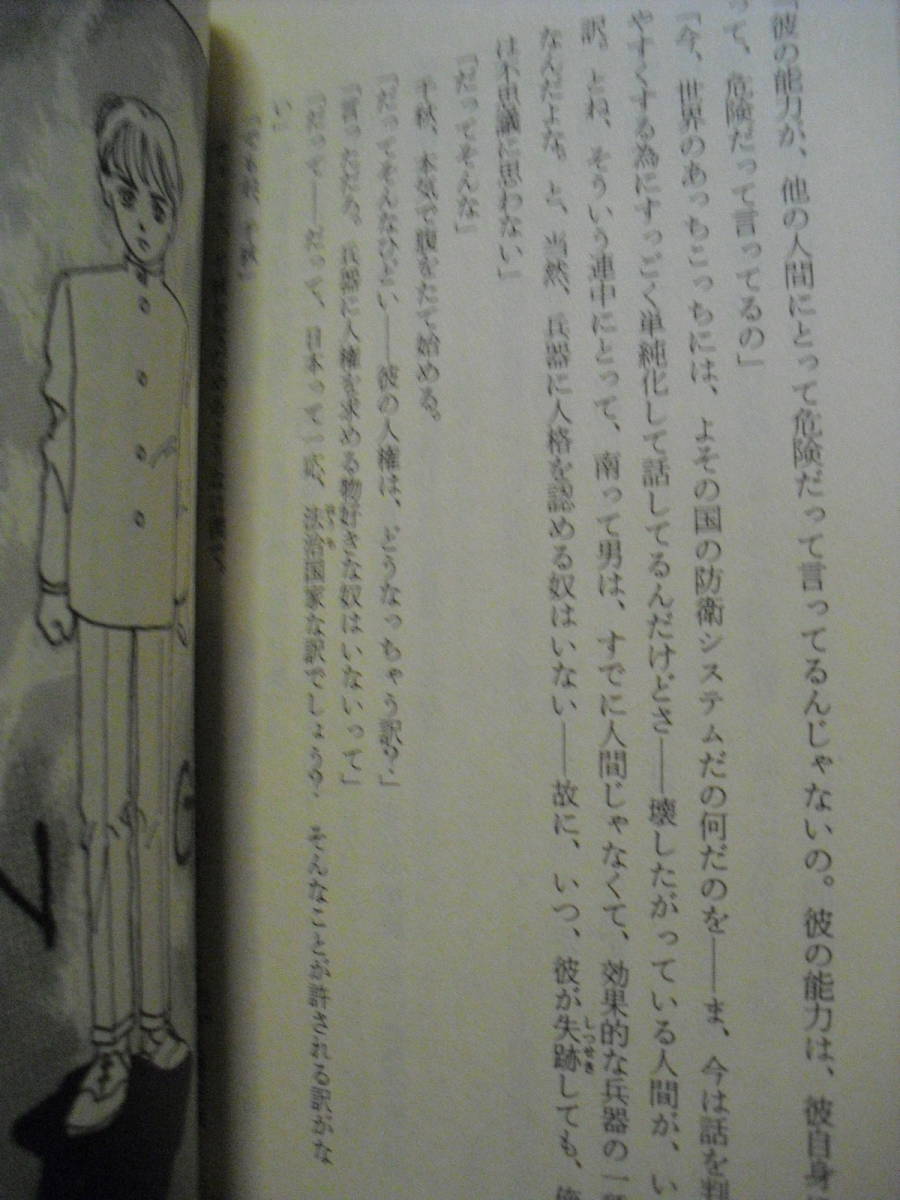 「彼の能力が、他の人間にとって危険だって言ってるんじゃないの。彼の能力は、彼自身
って、危険だって言ってるの」
「今、世界のあっちこっちには、よその国の防衛システムだの何だのを――ま、今は話を判
やすくする為にすっごく単純化して話してるんだけどさ――壊したがっている人間が、い
訳。とね、そういう連中にとって、南って男は、すでに人間じゃなくて、効果的な兵器の一
なんだよな。と、当然、兵器に人格を認める奴はいない――故に、いつ、彼が失跡しても、俺
しつせき
は不思議に思わない」
「だってそんな」
千秋、本気で腹をたて始める。
「だってそんなひどい――彼の人権は、どうなっちゃう訳?」
「言っただろ。兵器に人権を求める物好きな奴はいないって」
「だって――だって、日本って一応、法治国家な訳でしょう? そんなことが許される訳がな
ほうち
い」